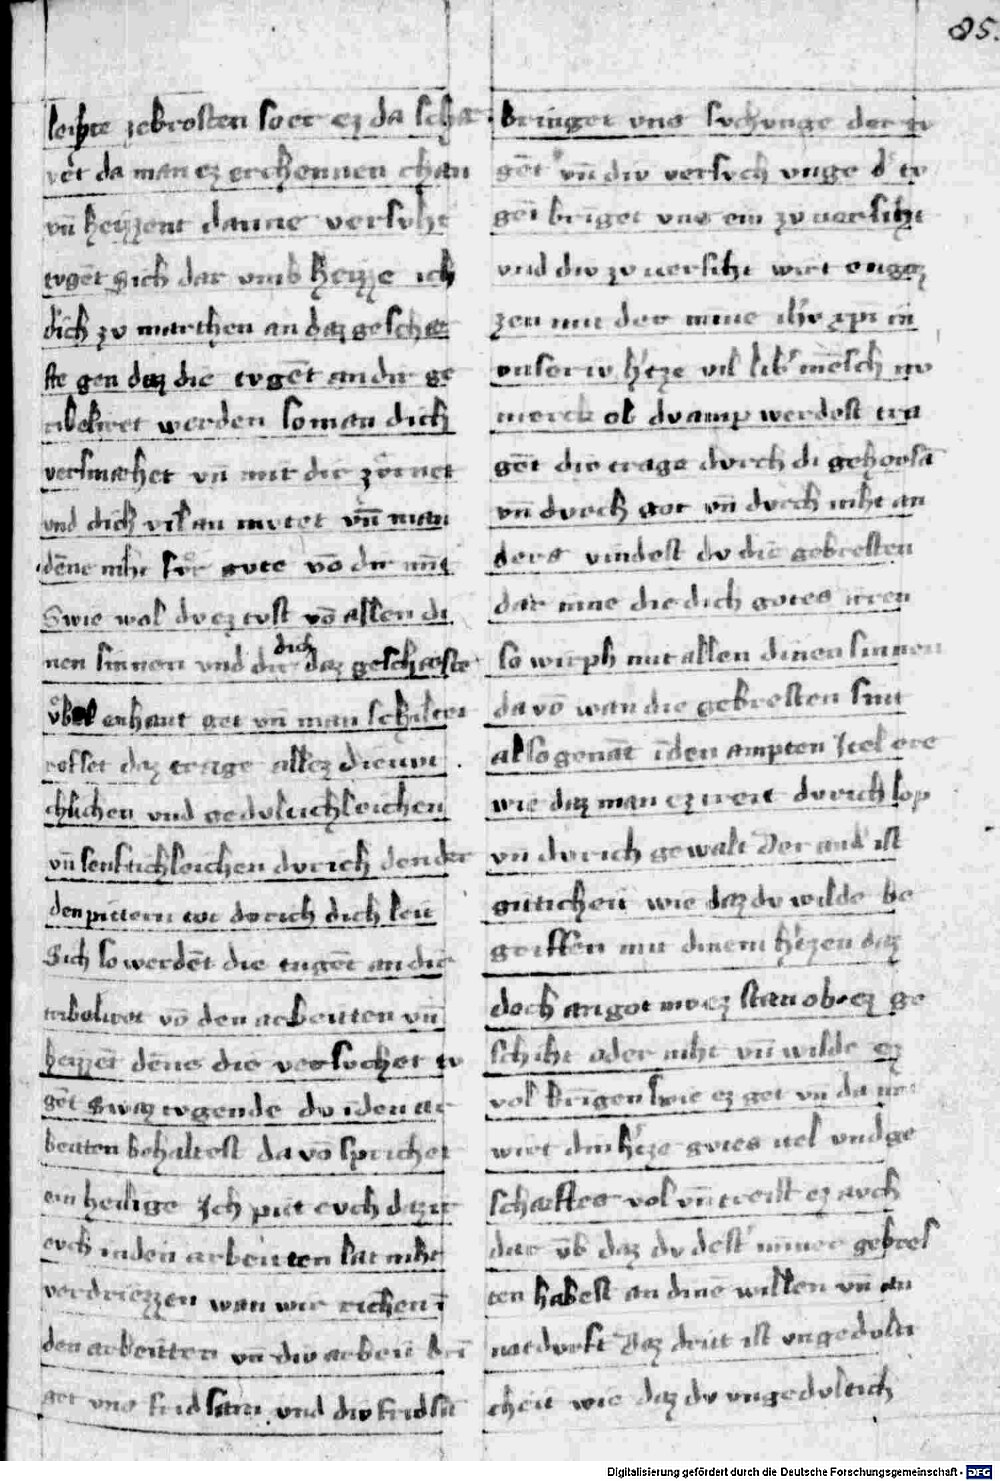 85.
leihte zebrosten so er ez da scha
vet da man ez erchennen chan
vn̄ heizzent danne versvht
tvgēt Sich dar vmb heizze ich
dich zv marthen an daz geschæ
fte gen daz die tvgēt an dir ge
wert werden so man dich
versmæhet vn̄ mit dir zvͤrnet
vnd dich vil an mvtet vn̄ man
dēne niht fvͤr gvte vō dir nīt
Swie wol dv ez tvst vō allen di
nen sinnen vnd dir dich daz geschæfte
vͤbel enhant get vn̄ man schiltet
daz trage allez diemvͤ
chlichen vnd gedvltichleichen
vn̄ senftichleichen dvrich den der
den pittern tot dorich dich leit
Sich so werdēt die tugēt an dir
vō den arbeitten vn̄
heizzēt dēne die versvchet tv
gēt Swaz tvgende dv iden ar
beiten behaltest da vō sprichet
ein heilige Ich pitt evch daz ir
evch inden arbeitten lat niht
verdriezzen wan wir richen ī
den arbeitten vn̄ div arbeit brī
get vns fridsam vnd div fridsā
bringet vns svchvnge der tv
gēt vn̄ div versvchvnge d' tv
gēt bringet vns ein zv versiht
vnd div zv versiht wirt engoz
zen mit der minne ihv xpi in
vnseriv h'tze vil lib' mēsch nv
merck ob dv amp werdest tra
gēt div trage dvrch di gehorsā
vn̄ dvrch got vn̄ dvrch niht an
ders vindest dv die gebresten
dar inne die dich gotes irren
so wirph mit allen dinen sinnen
da vō wan die gebresten sint
also genāt iden ampten Itel ere
wie daz man ez treit dvrich lop
vn̄ dvrich gewalt Der and' ist
gitticheit wie daz dv wilde be
griffen mit dinem h'tzen daz
doch an got mvez stan ob ez ge
schiht oder niht vn̄ wilde ez
vol bringen swie ez get vn̄ da
wirt din h'tze gotes itel vnd ge
schæftes vol vn̄ treist ez avch
dar vm̄b daz dv dest' minner gebres
ten habest an dine willen vn̄ an
notdvrft Daz drit ist vngedvlti
cheit wie daz dv vngedvltich
Digitalisierung gefördert durch die Deutsche Forschungsgemeinschaft - DFG